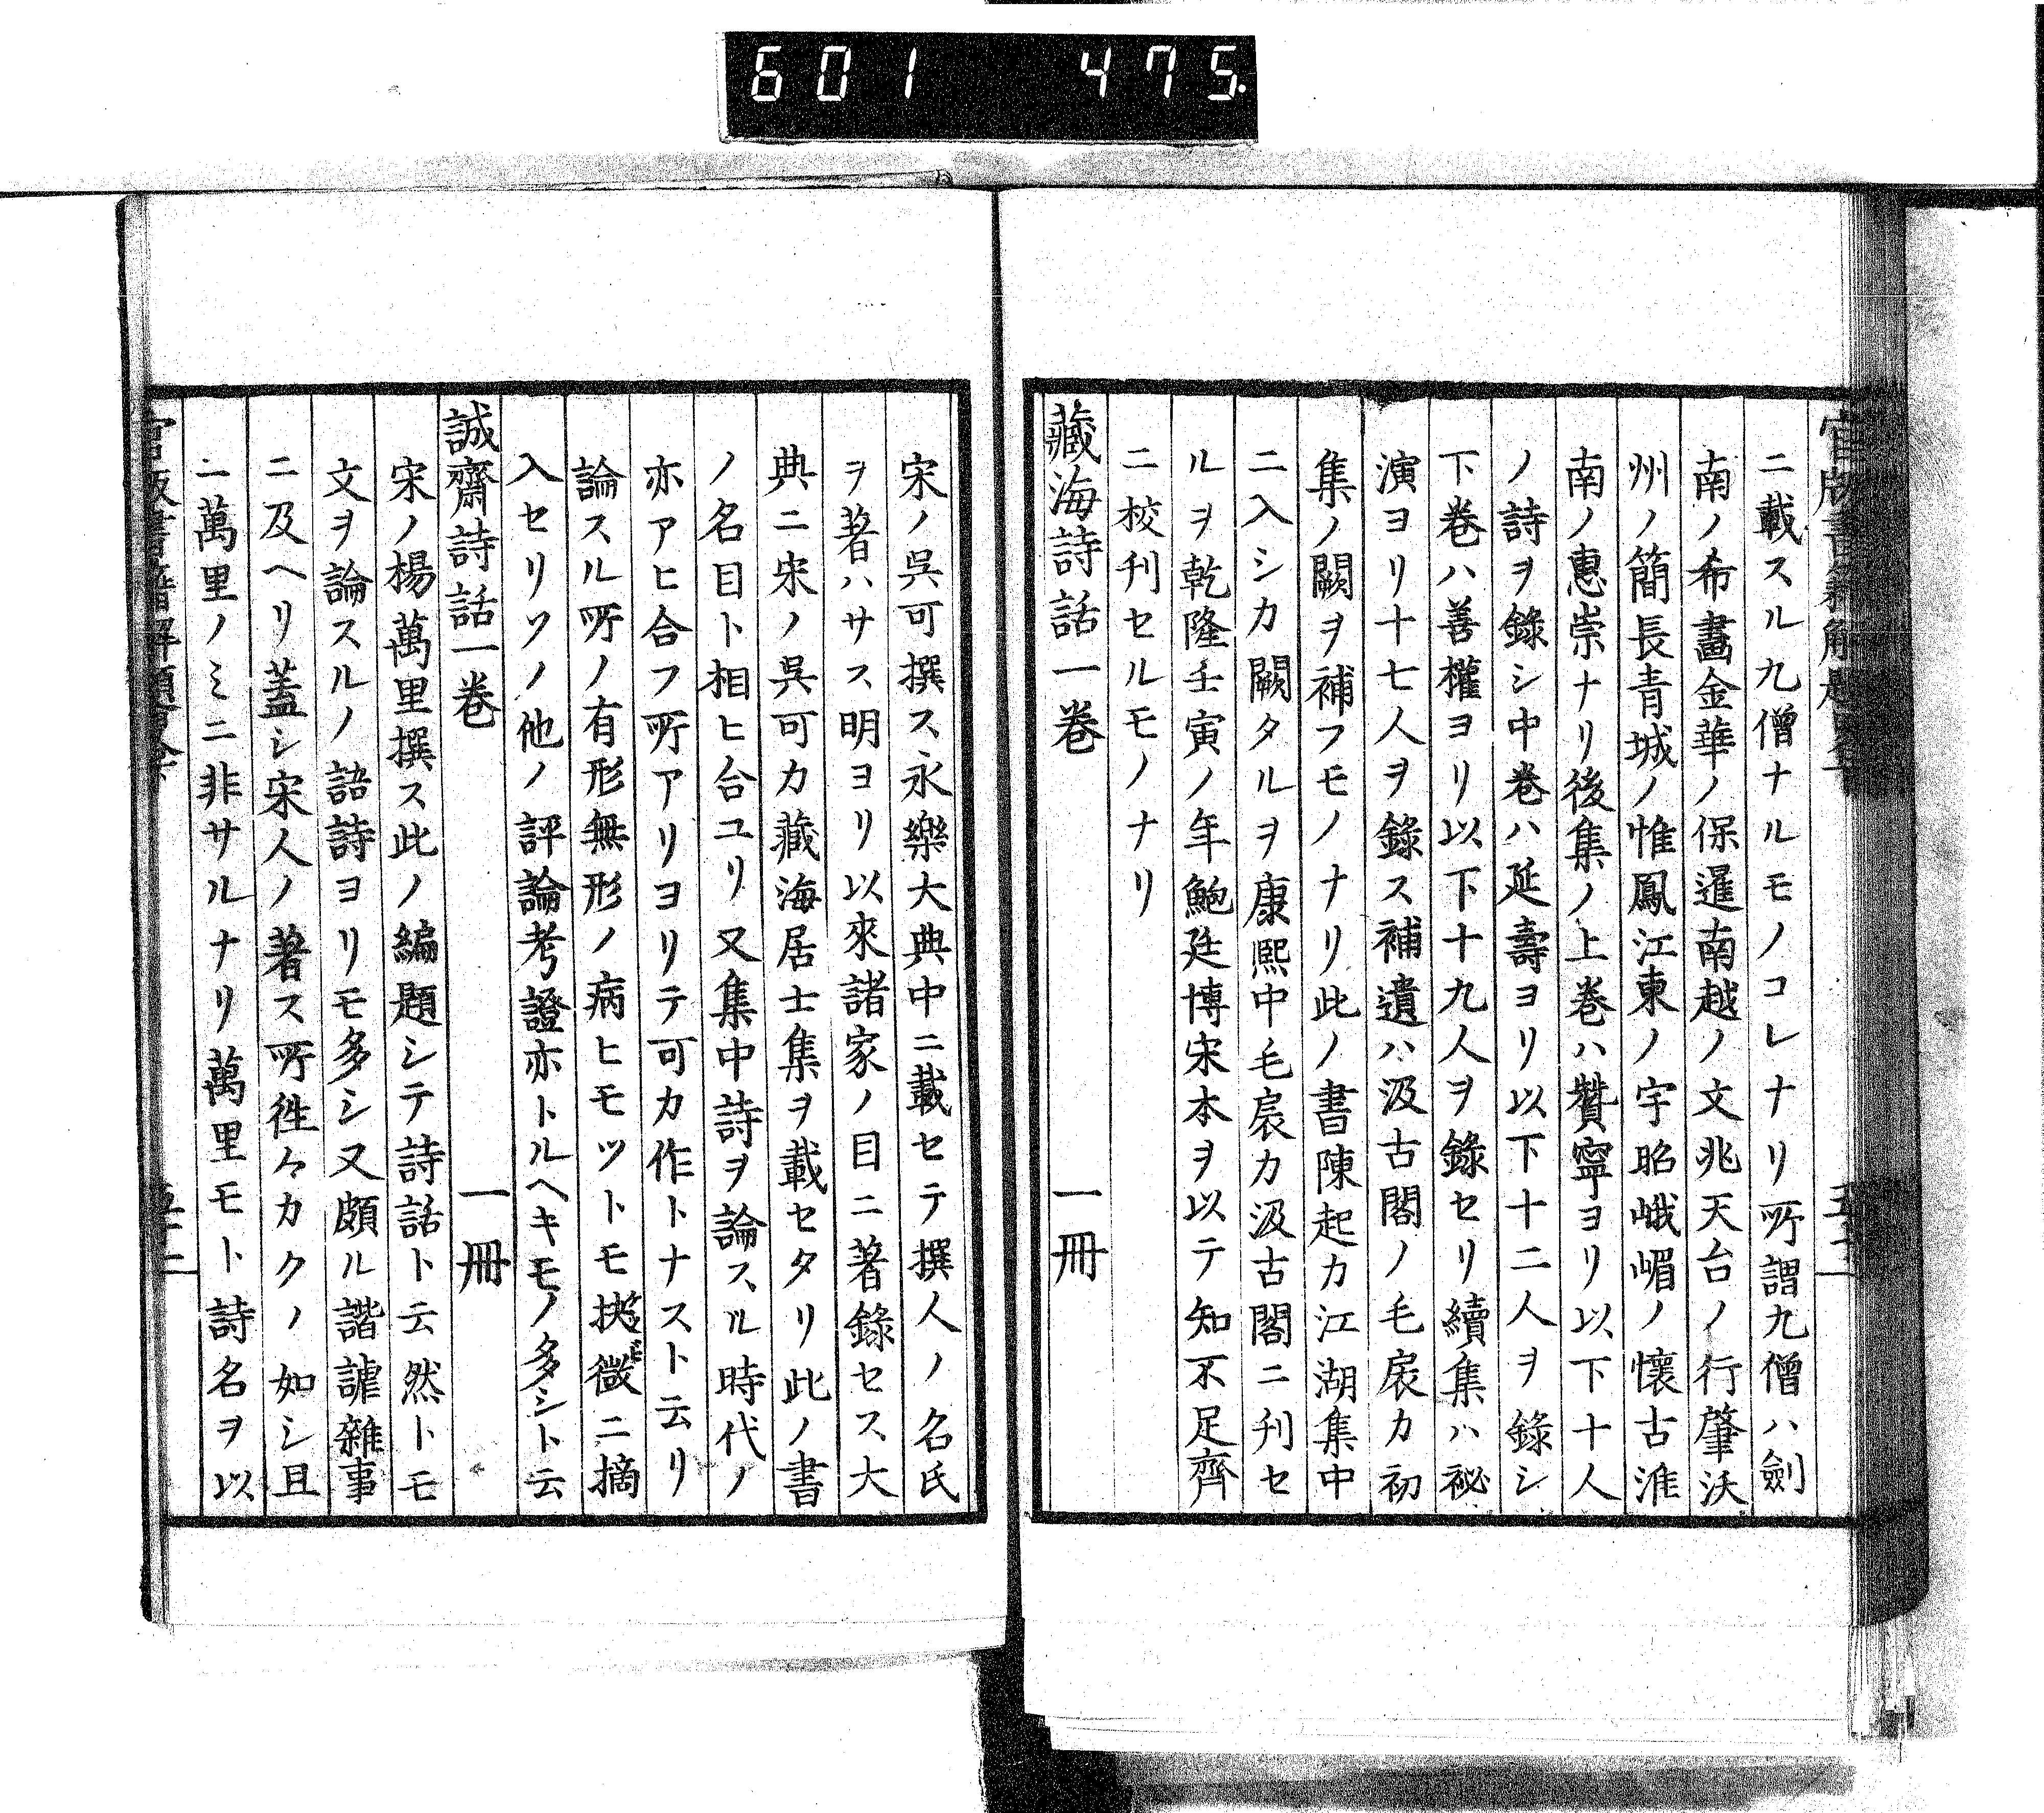 601 475.
ニ載スル九僧ナルモノコレナリ所謂九僧ハ劍
南ノ希晝金華ノ保暹南越ノ文兆天台ノ行肇沃
州ノ簡長青城ノ惟鳳江東ノ宇昭峨嵋ノ懷古淮
南ノ惠崇ナリ後集ノ上巻ハ贊寧ヨリ以下十人
ノ詩ヲ錄シ中巻ハ延壽ヨリ以下十二人ヲ錄シ
下巻ハ善權ヨリ以下十九人ヲ錄セリ續集ハ祕
演ヨリ十七人ヲ錄ス補遺ハ汲古閣ノ毛扆カ初
集ノ闕ヲ補フモノナリ此ノ書陳起カ江湖集中
ニ入シカ闕タルヲ康熙中毛扆カ汲古閣ニ刊セ
ルヲ乾隆壬寅ノ年鮑廷博宋本ヲ以テ知不足齊
ニ校刊セルモノナリ
藏海詩話一巻 一冊
宋ノ吳可撰ス永樂大典中ニ載セテ撰人ノ名氏
ヲ著ハサス明ヨリ以來諸家ノ目ニ著錄セス大
典ニ宋ノ吳可カ藏海居士集ヲ載セタリ此ノ書
ノ名目ト相ヒ合ユリ又集中詩ヲ論スル時代ノ
亦アヒ合フ所アリヨリテ可カ作トナスト云リ
論スル所ノ有形無形ノ病ヒモツトモ挾微ニ摘
入セリソノ他ノ評論考證亦トルヘキモノ多シト云
誠齋詩話一巻 一冊
宋ノ楊萬里撰ス此ノ編題シテ詩話ト云然トモ
文ヲ論スルノ語詩ヨリモ多シ又頗ル諧謔雜事
ニ及ヘリ蓋シ宋人ノ著ス所徃々カクノ如シ且
ニ萬里ノミニ非サルナリ萬里モト詩名ヲ以